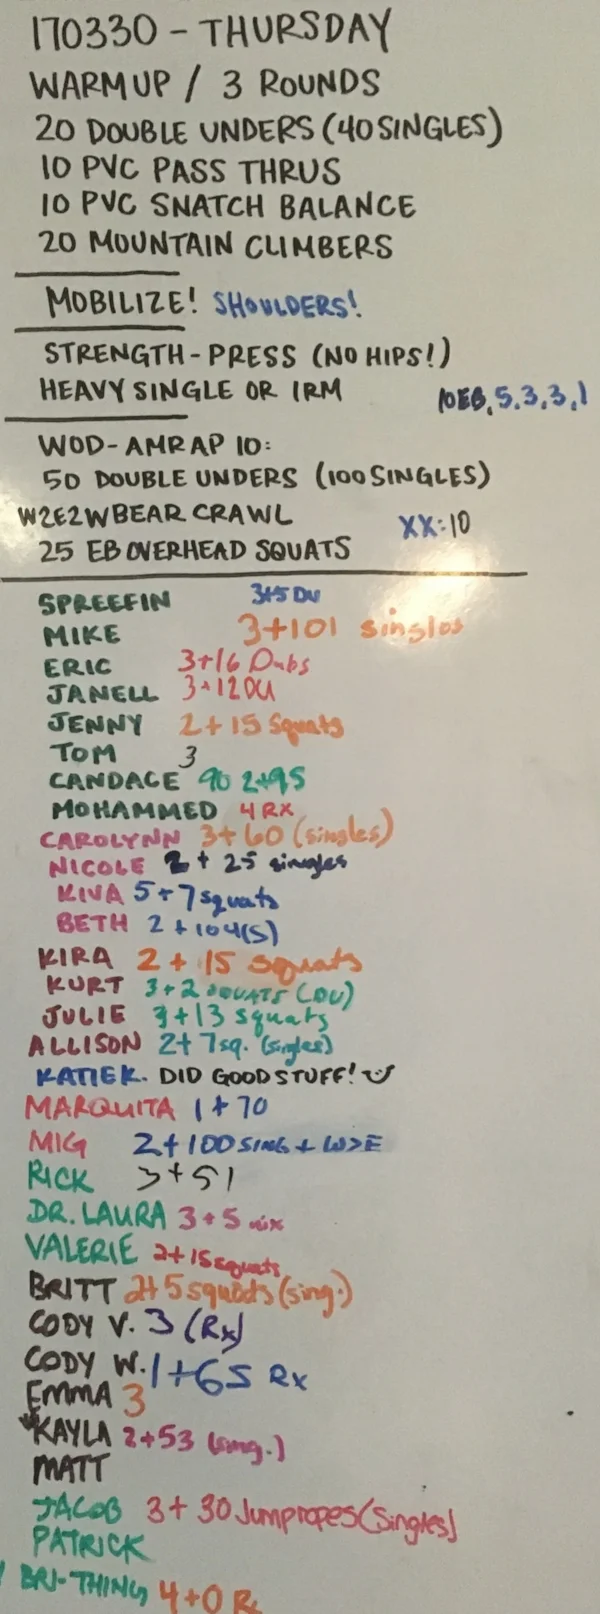 170330 - THURSDAY
WARMUP / 3 ROUNDS
20 DOUBLE UNDERS (40 SINGLES)
10 PVC PASS THRUS
10 PVC SNATCH BALANCE
20 MOUNTAIN CLIMBERS
MOBILIZE! SHOULDERS!
STRENGTH - PRESS (NO HIPS!)
HEAVY SINGLE OR 1RM 10EB, 5, 3, 3, 1
WOD - AMRAP 10:
50 DOUBLE UNDERS (100 SINGLES)
W2E2W BEAR CRAWL XX:10
25 EB OVERHEAD SQUATS
SPREEFIN 3+5 DU
MIKE 3+101 singles
ERIC 3+16 Dubs
JANELL 3+12 DU
JENNY 2+15 Squats
TOM 3
CANDACE 2+95
MOHAMMED 4 RX
CAROLYNN 3+60 (singles)
NICOLE 2 + 25 singles
KIVA 5+7 squats
BETH 2 + 104(S)
KIRA 2 + 15 squats
KURT 3+2 SQUATS (DU)
JULIE 3+13 squats
ALLISON 2+7 sq. (singles)
KATIE K. DID GOOD STUFF!
MARQUITA 1+70
MIG 2+100 SING + W>E
RICK 3+51
DR. LAURA 3+5 mix
VALERIE 2+15 squats
BRITT 2+5 squats (sing.)
CODY V. 3 (Rx)
CODY W. 1+65 Rx
EMMA 3
KAYLA 2+53 (sing.)
MATT
JACOB 3+30 Jumpropes (Singles)
PATRICK
BRI-THING 4+0